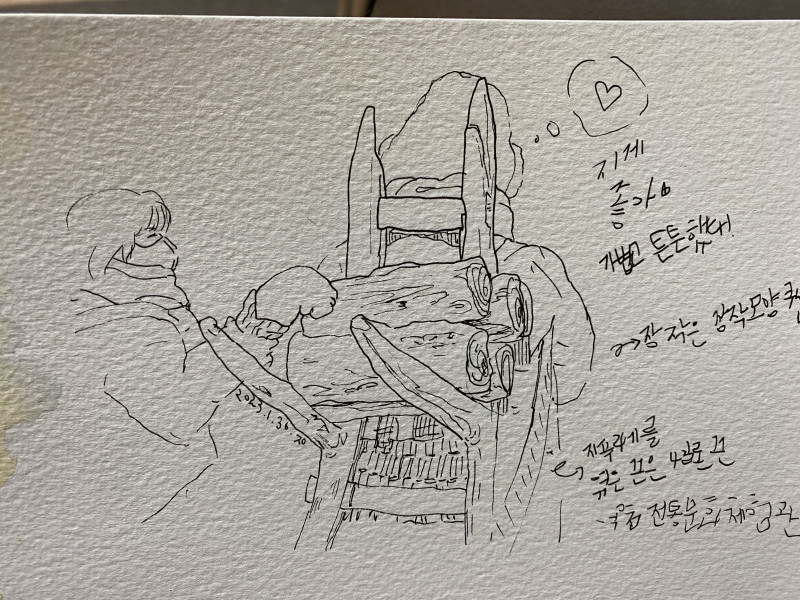 지게
좋아
가볍고 튼튼했다!
장작은 장작모양 쿠션
지푸라기를
엮은 끈은
전통문화체험관
2023.1.30